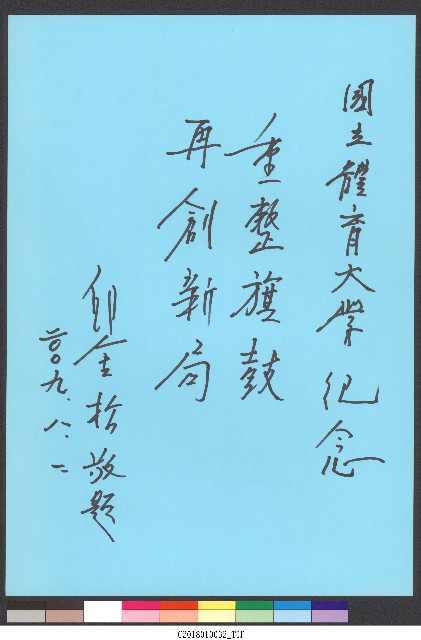 國立體育大學紀念
重整旗鼓
再創新局
邱金松敬題
二〇〇九.八.二
C2018010032_TIF